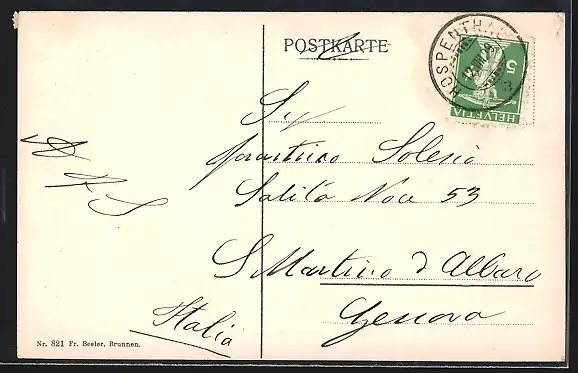 POSTKARTE
HOSPENTHAL
5
HELVETIA
S.
Solesio
Salita Noce 53
S Martino d'Albaro
Genova
Italia
Nr. 821 Fr. Beeler, Brunnen.